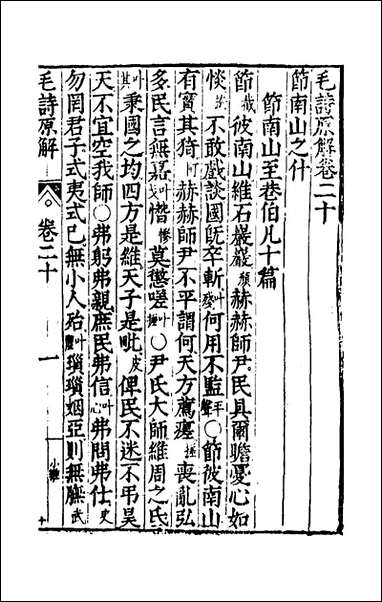 毛詩原解卷二十
節南山之什
節南山至巷伯凡十篇
節截彼南山維石巖巖顏赫赫師尹民具爾瞻憂心如
惔炎不敢戲談國旣卒斬叶何用不監平聲○節彼南山
有實其猗叶阿赫赫師尹不平謂何天方薦瘥搓喪亂弘
多民言無嘉叶戈憯慘莫懲嗟叶搓○尹氏大師維周之氐
叶其秉國之均四方是維天子是毗皮俾民不迷不弔昊
天不宜空我師○弗躬弗親庶民弗信叶心弗問弗仕史
勿罔君子式夷式已無小人殆叶瑣瑣姻亞則無膴武
毛詩原解 卷二十 一 小雅